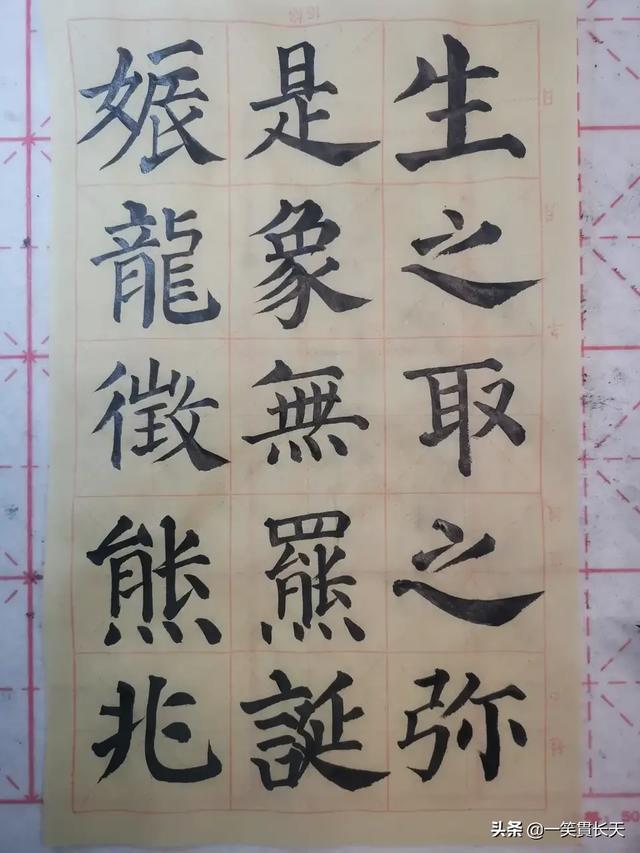 生之取之弥
是象無羆誕
娠龍徵熊兆
50
头条 @一笑貫长天